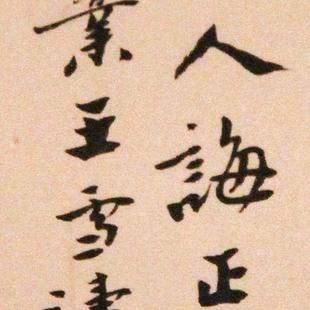 人誨正
業王雪涛